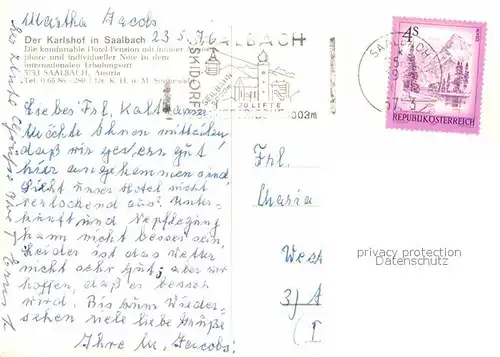 Martha Jacobs
23.5.76
Der Karlshof in Saalbach
Die komfortable Hotel-Pension mit intimer
phäre und individueller Note in dem
internationalen Erholungsort
5753 SAALBACH, Austria
SAALBACH
SKIDORF
SEILBAHN
70 LIFTE
003m
SAALBACH
4S
REPUBLIK ÖSTERREICH
Liebes Frl. Katharina
Möchte Ihnen mitteilen,
daß wir gestern gut
hier angekommen sind.
Sieht unser Hotel nicht
verlockend aus. Unter-
kunft und Verpflegung
kann nicht besser sein.
Leider ist das Wetter
nicht sehr gut, aber wir
hoffen, daß es besser
wird. Bis zum Wieder-
sehen viele liebe Grüße
Ihre M. Jacobs
Frl.
Maria
West
privacy protection
Datenschutz